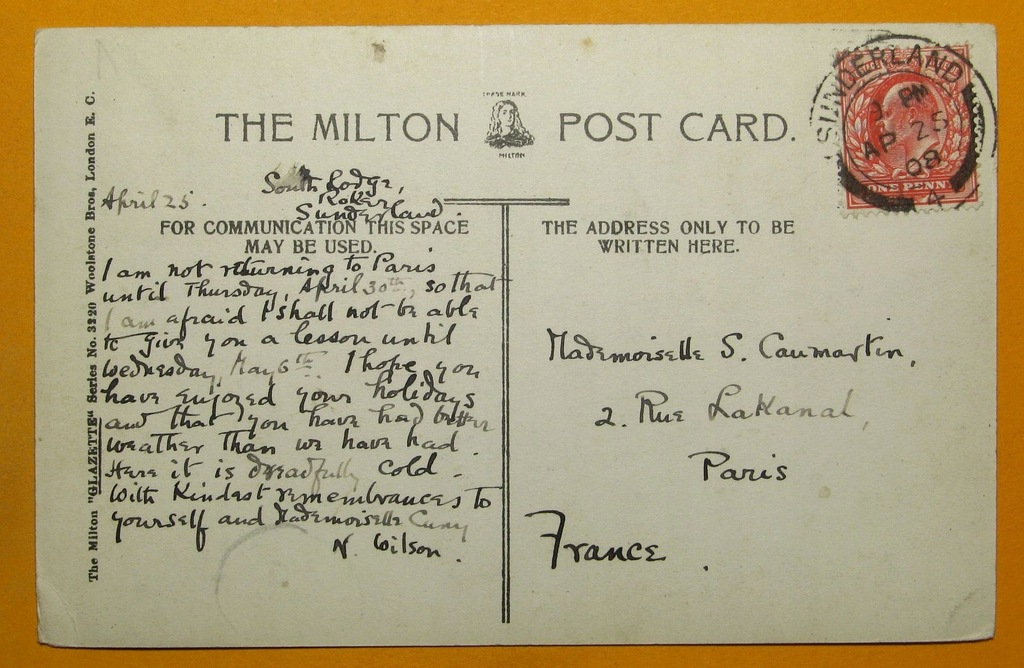 THE MILTON POST CARD.
TRADE MARK
MILTON
SUNDERLAND
9 PM
AP 25
08
4
ONE PENNY
The Milton "GLAZETTE" Series No. 3220 Woolstone Bros, London E. C.
South Lodge,
Roker
Sunderland.
April 25.
FOR COMMUNICATION THIS SPACE
MAY BE USED.
I am not returning to Paris
until Thursday, April 30th, so that
I am afraid I shall not be able
to give you a lesson until
Wednesday, May 6th. I hope you
have enjoyed your holidays
and that you have had better
weather than we have had.
Here it is dreadfully cold.
With kindest remembrances to
yourself and Mademoiselle Cuny
N. Wilson.
THE ADDRESS ONLY TO BE
WRITTEN HERE.
Mademoiselle S. Caumartin,
2. Rue Lakanal,
Paris
France.